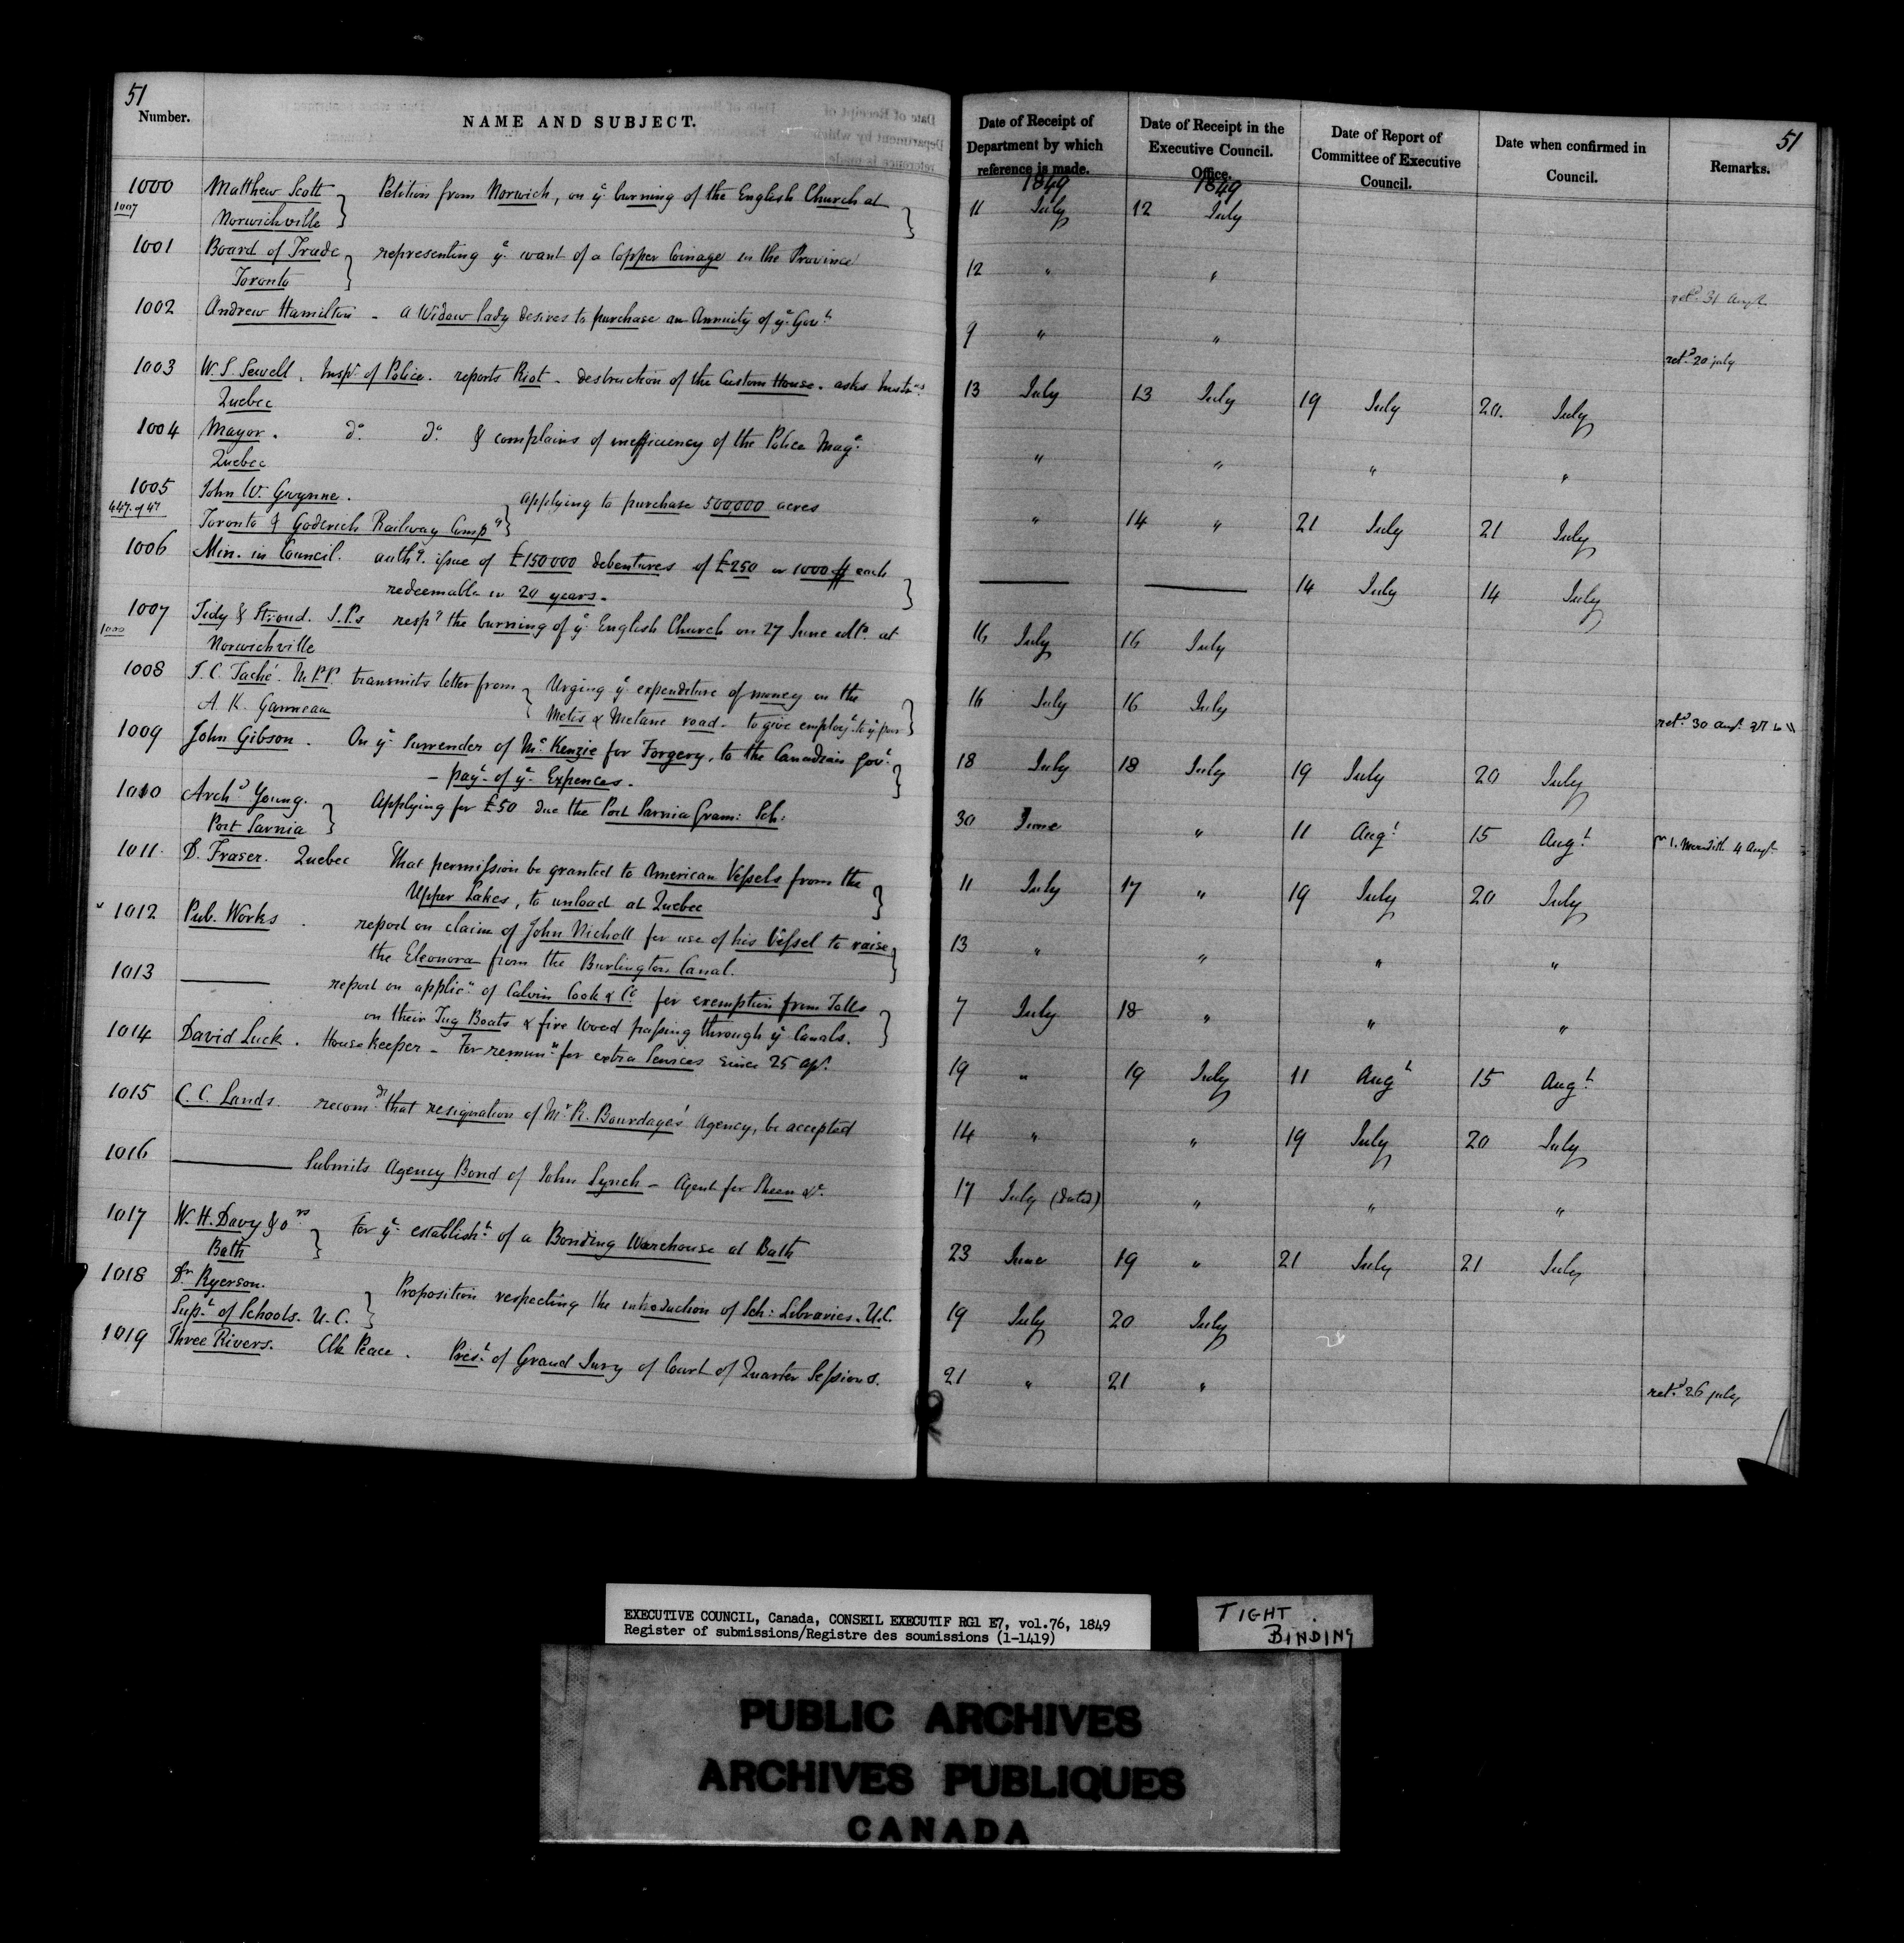 51
Number.
NAME AND SUBJECT.
Date of Receipt of Department by which reference is made.
Date of Receipt in the Executive Council. Office.
Date of Report of Committee of Executive Council.
Date when confirmed in Council.
Remarks.
51
1849
1849
1000 Matthew Scott Petition from Norwich, on ye burning of the English Church at 11 July 12 July
1007 Norwichville
1001 Board of Trade representing ye want of a Copper Coinage in the Province 12 " "
Toronto retd 31 Augt
1002 Andrew Hamilton - a Widow lady desires to purchase an Annuity of ye Govt 9 " " retd 20 july
1003 W. S. Sewell. Inspr of Police. reports Riot - destruction of the Custom House. asks Instns 13 July 13 July 19 July 20. July
Quebec
1004 Mayor. do do & complains of inefficiency of the Police Mage " " " "
Quebec
1005 John W. Gwynne. applying to purchase 500,000 acres " 14 " 21 July 21 July
447 of 47 Toronto & Goderich Railway Compy
1006 Min. in Council. authg issue of £150000 debentures of £250 or 1000 $ each — — 14 July 14 July
redeemable in 20 years.
1007 Tidy & Stroud. J.P.s respg the burning of ye English Church on 27 June ulto at 16 July 16 July
1000 Norwichville
1008 J. C. Taché. M.P.P. transmits letter from Urging ye expenditure of money on the 16 July 16 July
A. K. Ganneau Metis & Metane road - to give employt to ye poor retd 30 Augt
1009 John Gibson. On ye Surrender of McKenzie for Forgery, to the Canadian Govt 18 July 18 July 19 July 20 July
- payt of ye Expences.
1010 Archd Young. Applying for £50 due the Port Sarnia Gram: Sch: 30 June " 11 Augt 15 Augt Meredith 4 Augt
Port Sarnia
1011 D. Fraser. Quebec That permission be granted to American Vessels from the 11 July 17 " 19 July 20 July
Upper Lakes, to unload at Quebec
1012 Pub. Works. report on claim of John Nicholl for use of his Vessel to raise 13 " " " "
the Eleonora from the Burlington Canal.
1013 — report on applicn of Calvin Cook & Co for exemption from Tolls 7 July 18 " " "
on their Tug Boats & fire wood passing through ye Canals.
1014 David Luck. House keeper - For remunn for extra Services since 25 Ap. 19 " 19 July 11 Augt 15 Augt
1015 C. C. Lands. recomds that resignation of Mr R. Bourdages' Agency, be accepted 14 " " 19 July 20 July
1016 — Submits Agency Bond of John Lynch - Agent for Sheen &c. 17 July (dated) " " "
1017 W. H. Davy & ors For ye establisht of a Bonding Warehouse at Bath 23 June 19 " 21 July 21 July
Bath
1018 Dr Ryerson. Proposition respecting the introduction of Sch: Libraries. U.C. 19 July 20 July
Supt of Schools. U.C.
1019 Three Rivers. Clk Peace. Prest of Grand Jury of Court of Quarter Sessions. 21 " 21 " retd 26 july
EXECUTIVE COUNCIL, Canada, CONSEIL EXECUTIF RG1 E7, vol.76, 1849
Register of submissions/Registre des soumissions (1-1419)
TIGHT BINDING
PUBLIC ARCHIVES
ARCHIVES PUBLIQUES
CANADA